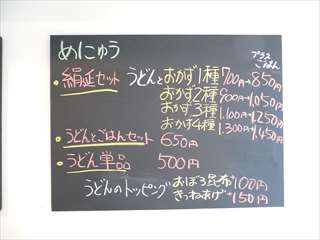 めにゅう
プラス
ごはん
・絹延セット うどんとおかず1種 700円→850円
おかず2種 900円→1,050円
おかず3種 1,100円→1,250円
おかず4種 1,300円→1,450円
・うどんとごはんセット 650円
・うどん単品 500円
うどんのトッピング おぼろ昆布+100円
きつねあげ+150円